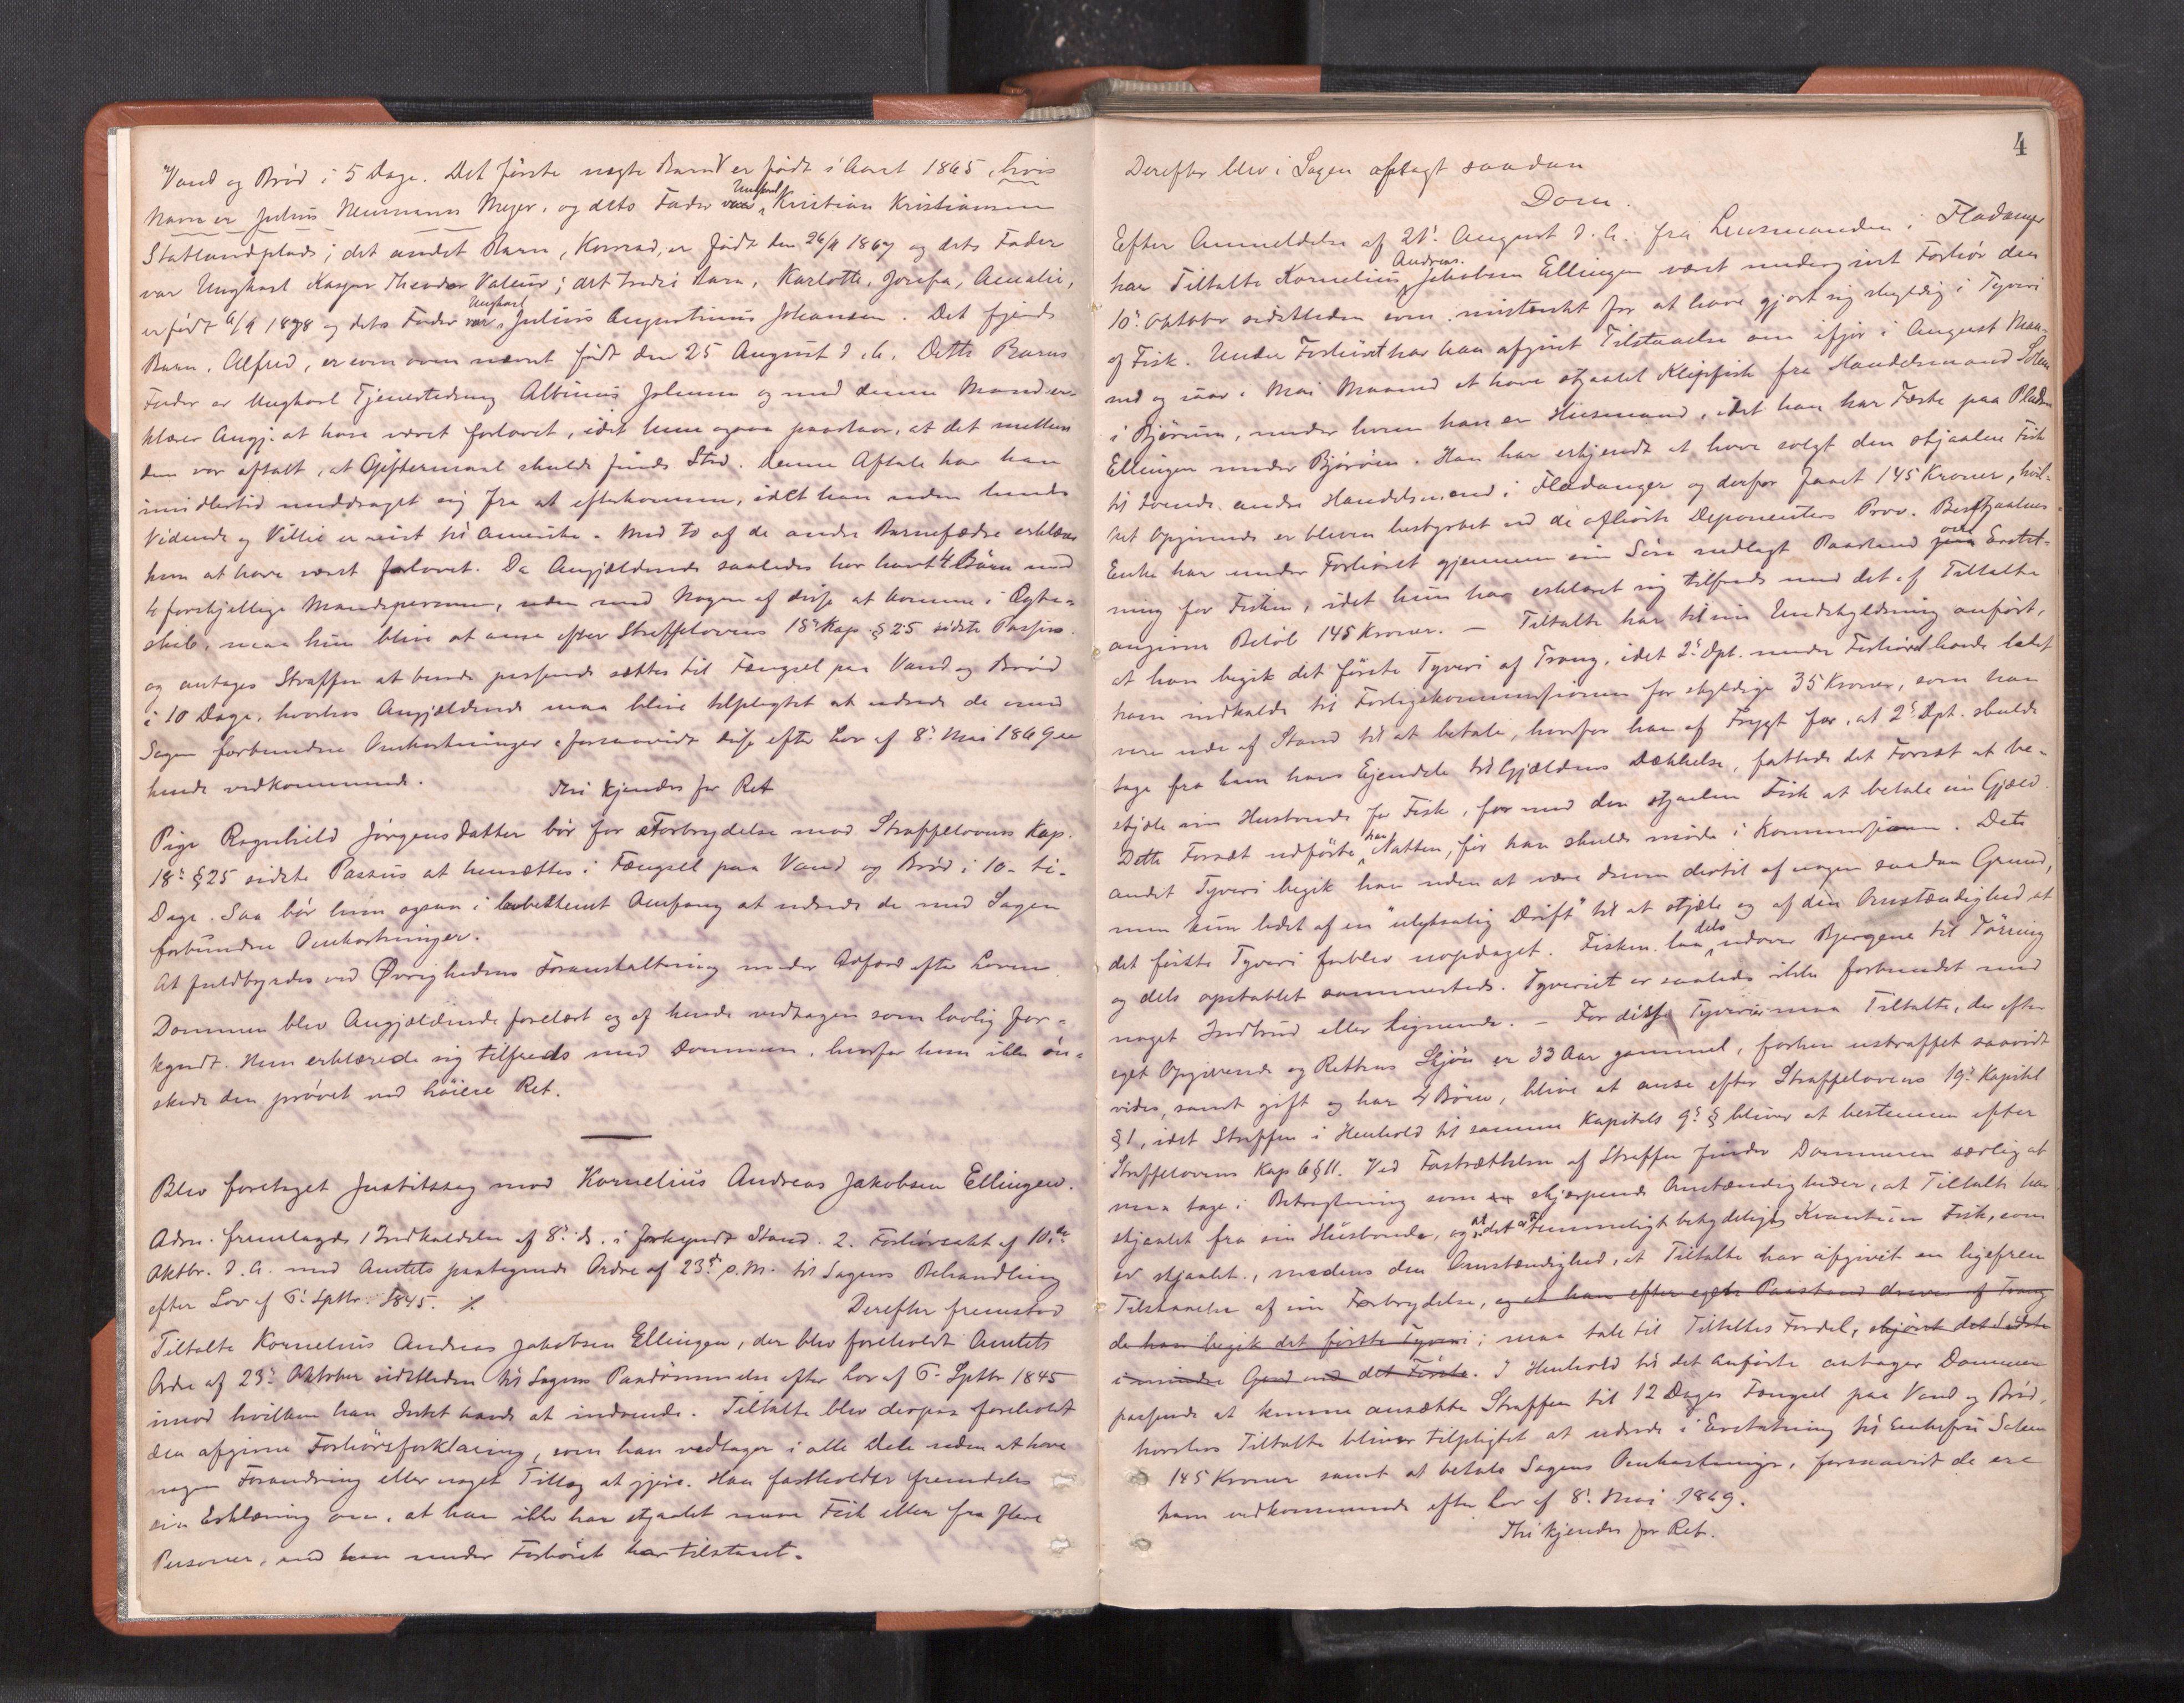 Vand og Brød i 5 Dage. Det første uægte Barn er født i Aaret 1865, hvis
Navn er Julius Neumann Meyer, og dets Fader var Ungkarl Kristian Kristiansen
Statlandplads; det andet Barn, Konrad, er født den 26/4 1867 og dets Fader
var Ungkarl Kasper Theodor Valeur; det tredie Barn, Karlotte, Josefa, Amalie,
er født 6/9 1878 og dets Fader var Ungkarl Julius Augustinus Johansen. Det fjerde
Barn, Alfred, er som oven nævnt født den 25 August d. A. Dette Barns
Fader er Ungkarl Tjenestedreng Albinus Johnsen og med denne Mand er-
klærer Angj. at have været forlovet, idet hun ogsaa paastaar, at det mellem
dem var aftalt, at Giftermaal skulde finde Sted. Denne Aftale har han
imidlertid unddraget sig fra at efterkomme, idet han uden hendes
Vidende og Villie er reist til Amerika. Med to af de andre Barnefædre erklærer
hun at have været forlovet. Da Angjældende saaledes har havt 4 Børn med
4 forskjellige Mandspersoner, uden med Nogen af disse at komme i Ægte-
skab, maa hun blive at anse efter Straffelovens 18de Kap. § 25 sidste Passus
og antages Straffen at burde passende sættes til Fængsel paa Vand og Brød
i 10 Dage, hvorhos Angjældende maa blive tilpligtet at udrede de med
Sagen forbundne Omkostninger, forsaavidt disse efter Lov af 8de Mai 1869 ere
hende vedkommende.
Thi kjendes for Ret
Pige Ragnhild Jørgensdatter bør for Forbrydelse mod Straffelovens Kap.
18de § 25 sidste Passus at hensættes i Fængsel paa Vand og Brød i 10 - ti -
Dage. Saa bør hun ogsaa i lovbestemt Omfang at udrede de med Sagen
forbundne Omkostninger.
At fuldbyrdes ved Øvrighedens Foranstaltning under Adfærd efter Loven.
Dommen blev Angjældende forelæst og af hende vedtagen som lovlig for-
kyndt. Hun erklærede sig tilfreds med Dommen, hvorfor hun ikke øn-
skede den prøvet ved høiere Ret.
Blev foretaget Justitssag mod Kornelius Andreas Jakobsen Ellingen.
Adm. fremlagde 1 Indkaldelse af 8de ds. i forkyndt Stand. 2. Forhørsakt af 10de
Oktbr. d. A. med Amtets paategnede Ordre af 23de s. M. til Sagens Behandling
efter Lov af 6te Septbr. 1845. ⁒ Derefter fremstod
Tiltalte Kornelius Andreas Jakobsen Ellingen, der blev foreholdt Amtets
Ordre af 23de Oktober sidstleden til Sagens Paadømmelse efter Lov af 6te Septbr 1845
imod hvilken han Intet havde at indvende. Tiltalte blev derpaa foreholdt
den afgivne Forhørsforklaring, som han vedtager i alle Dele uden at have
nogen Forandring eller noget Tillæg at gjøre. Han fastholder fremdeles
sin Erklæring om, at han ikke har stjaalet mere Fisk eller fra flere
Personer, end han under Forhøret har tilstaaet.
4
Derefter blev i Sagen afsagt saadan
Dom.
Efter Anmeldelse af 21de August d. A. fra Lensmanden i Fladanger
har Tiltalte Kornelius Andreas Jakobsen Ellingen været undergivet Forhør den
10de Oktober sidstleden som mistænkt for at have gjort sig skyldig i Tyveri
af Fisk. Under Forhøret har han afgivet Tilstaaelse om ifjor i August Maa-
ned og iaar i Mai Maaned at have stjaalet Klipfisk fra Handelsmand Solem
i Bjørøen, under hvem han er Husmand, idet han har Fæste paa Pladsen
Ellingen under Bjørøen. Han har erkjendt at have solgt den stjaalne Fisk
til tvende andre Handelsmænd i Fladanger og derfor faaet 145 Kroner, hvil-
ket Opgivende er bleven bestyrket ved de afhørte Deponenters Prov. Bestjaalnes
Enke har under Forhøret gjennem sin Søn nedlagt Paastand om Erstat-
ning for Fisken, idet hun har erklæret sig tilfreds med det af Tiltalte
angivne Beløb 145 Kroner. — Tiltalte har til sin Undskyldning anført,
at han begik det første Tyveri af Trang, idet 2de Dpt. under Forhøret havde ladet
ham indkalde til Forligskommissionen for skyldige 35 Kroner, som han
var ude af Stand til at betale, hvorfor han af Frygt for, at 2de Dpt. skulde
tage fra ham hans Eiendele til Gjældens Dækkelse, fattede det Forsæt at be-
stjæle sin Husbonde for Fisk, for med den stjaalne Fisk at betale sin Gjæld.
Dette Forsæt udførte han Natten, før han skulde møde i Kommissionen. Det
andet Tyveri begik han uden at være dreven dertil af nogen saadan Grund,
men kun ledet af en "ulyksalig Drift" til at stjæle og af den Omstændighed, at
det første Tyveri forblev uopdaget. Fisken laa dels udover Bjergene til Tørring
og dels opstablet sammesteds. Tyveriet er saaledes ikke forbundet med
noget Indbrud eller Lignende. — For disse Tyverier maa Tiltalte, der efter
eget Opgivende og Rettens Skjøn er 33 Aar gammel, forhen ustraffet saavidt
vides, samt gift og har 4 Børn, blive at anse efter Straffelovens 19de Kapitel
§ 1, idet Straffen i Henhold til samme Kapitels 9de § bliver at bestemme efter
Straffelovens Kap 6 § 11. Ved Fastsættelsen af Straffen finder Dommeren særlig at
maa tage i Betragtning som skjærpende Omstændigheder, at Tiltalte har
stjaalet fra sin Husbonde, og at det er et temmeligt betydeligt Kvantum Fisk, som
er stjaalet, medens den Omstændighed, at Tiltalte har afgivet en ligefrem
Tilstaaelse af sin Forbrydelse, og at han efter egen Paastand dreves af Trang
da han begik det første Tyveri; maa tale til Tiltaltes Fordel, skjønt det Sidste
i mindre Grad end det Første. I Henhold til det Anførte antager Dommeren
passende at kunne ansætte Straffen til 12 Dages Fængsel paa Vand og Brød,
hvorhos Tiltalte bliver tilpligtet at udrede i Erstatning til Enkefru Solem
145 Kroner samt at betale Sagens Omkostninger, forsaavidt de ere
ham vedkommende efter Lov af 8de Mai 1869.
Thi kjendes for Ret.